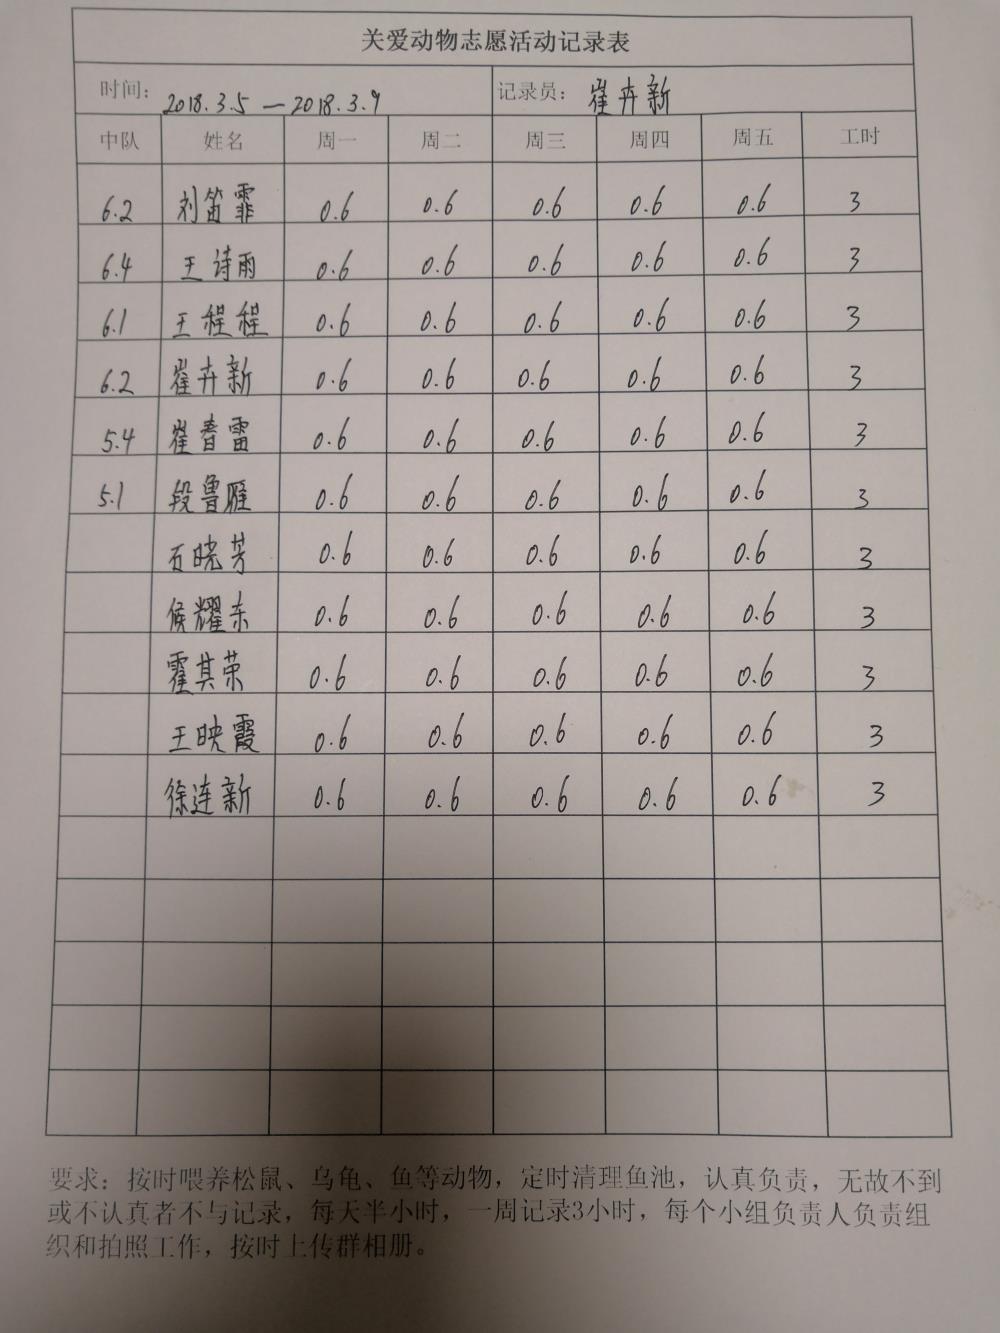 关爱动物志愿活动记录表
时间：2018.3.5—2018.3.9 记录员：崔卉新
中队 姓名 周一 周二 周三 周四 周五 工时
6.2 刘笛霏 0.6 0.6 0.6 0.6 0.6 3
6.4 王诗雨 0.6 0.6 0.6 0.6 0.6 3
6.1 王程程 0.6 0.6 0.6 0.6 0.6 3
6.2 崔卉新 0.6 0.6 0.6 0.6 0.6 3
5.4 崔春雷 0.6 0.6 0.6 0.6 0.6 3
5.1 段鲁雁 0.6 0.6 0.6 0.6 0.6 3
石晓芳 0.6 0.6 0.6 0.6 0.6 3
候耀东 0.6 0.6 0.6 0.6 0.6 3
霍其荣 0.6 0.6 0.6 0.6 0.6 3
王映霞 0.6 0.6 0.6 0.6 0.6 3
徐连新 0.6 0.6 0.6 0.6 0.6 3
要求：按时喂养松鼠、乌龟、鱼等动物，定时清理鱼池，认真负责，无故不到
或不认真者不与记录，每天半小时，一周记录3小时，每个小组负责人负责组
织和拍照工作，按时上传群相册。